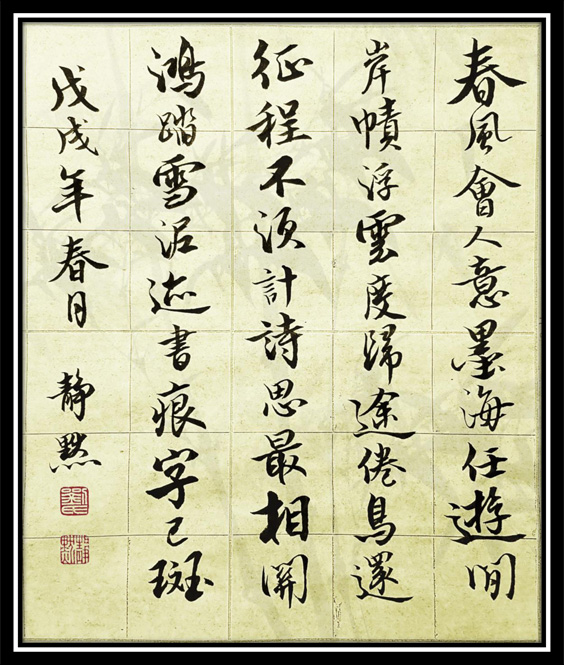 春風會人意墨海任遊閒
岸幘浮雲度歸途倦鳥還
征程不須計詩思最相關
鴻踏雪泥迹書痕字已斑
戊戌年春月 靜默